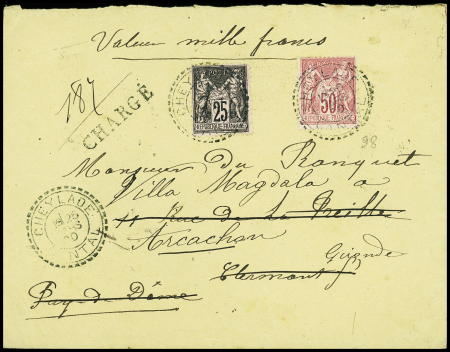 Valeur mille francs
187
CHARGÉ
25
RÉPUBLIQUE FRANÇAISE
50
CHEYLADE
CHEYLADE
98
Monsieur du Ranquet
Villa Magdala a
11 Rue de la Treille
Arcachon
Gironde
Clermont
Puy-de-Dôme
CHEYLADE
CANTAL